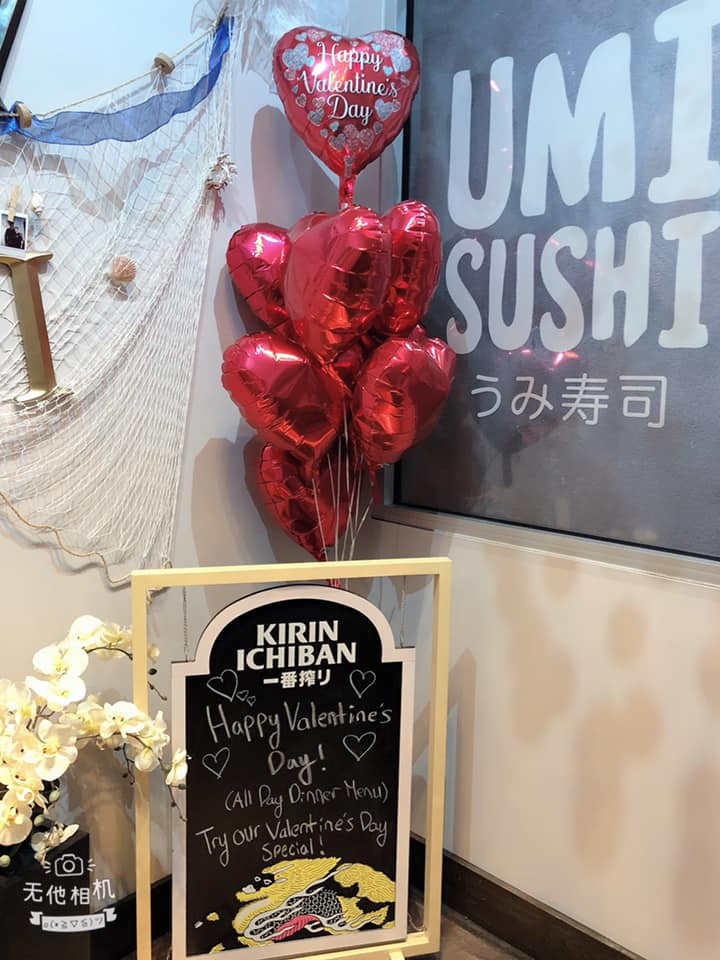 Happy
Valentine's
Day
UMI
SUSHI
うみ寿司
I
KIRIN
ICHIBAN
一番搾り
Happy Valentine's
Day!
(All Day Dinner Menu)
Try our Valentine's Day
Special!
无他相机
o(*≧▽≦)ツ